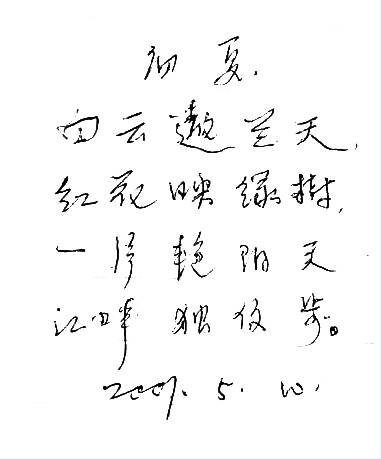 初夏.
白云遨兰天,
红花映绿树,
一片艳阳天
江畔独仪步。
2009. 5. 10.